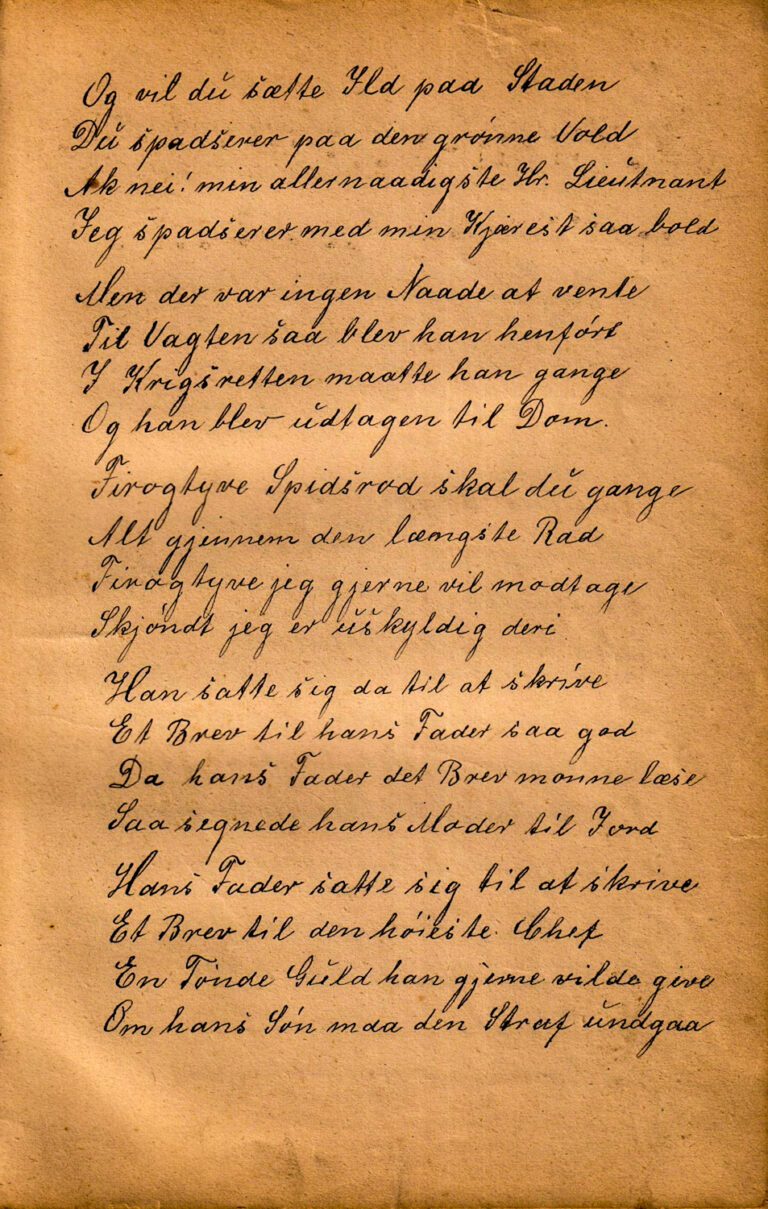 Og vil du sætte Ild paa Staden
Du spadserer paa den grønne Vold
Ak nei! min allernaadigste Hr. Lieutnant
Jeg spadserer med min Kjærest saa bold
Men der var ingen Naade at vente
Til Vagten saa blev han henført
I Krigsretten maatte han gange
Og han blev udtagen til Dom.
Firogtyve Spidsrod skal du gange
Alt gjennem den længste Rad
Firogtyve jeg gjerne vil modtage
Skjøndt jeg er uskyldig deri
Han satte sig da til at skrive
Et Brev til hans Fader saa god
Da hans Fader det Brev monne læse
Saa segnede hans Moder til Jord
Hans Fader satte sig til at skrive
Et Brev til den høieste Chef
En Tønde Guld han gjerne vilde give
Om hans Søn maa den Straf undgaa